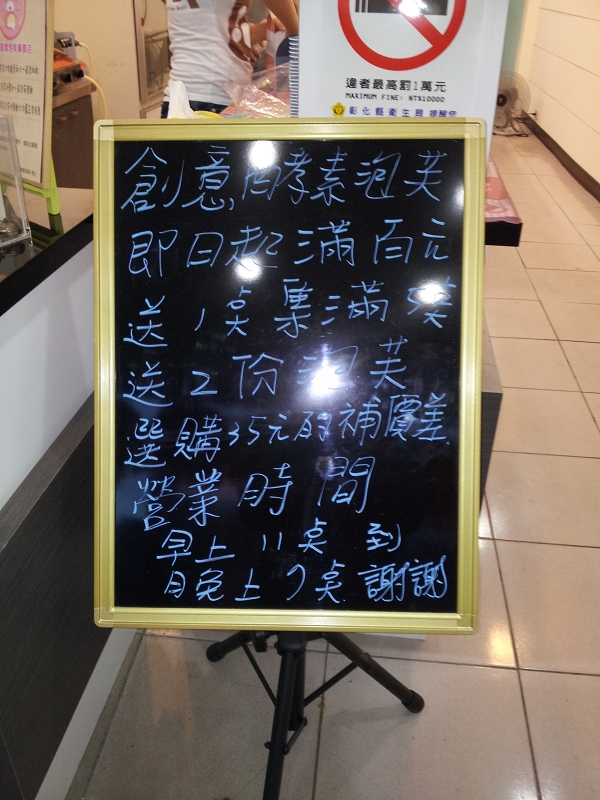 違者最高罰1萬元
MAXIMUM FINE: NT$10000
彰化縣衛生局 提醒您
創意,酵素泡芙
即日起滿百元
送1点集滿5奌
送2份泡芙
選購35元的補價差
營業時間
早上11点到
晚上9点謝謝